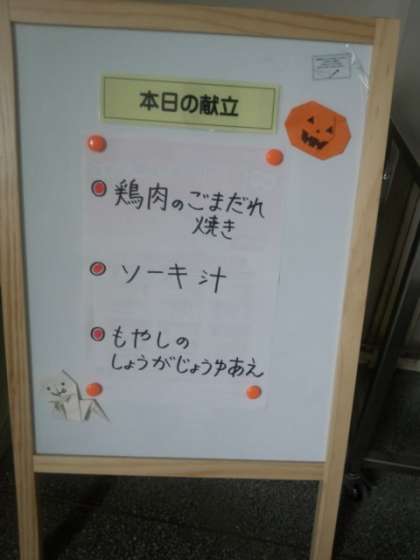 本日の献立
鶏肉のごまだれ
焼き
ソーキ汁
もやしの
しょうがじょうゆあえ